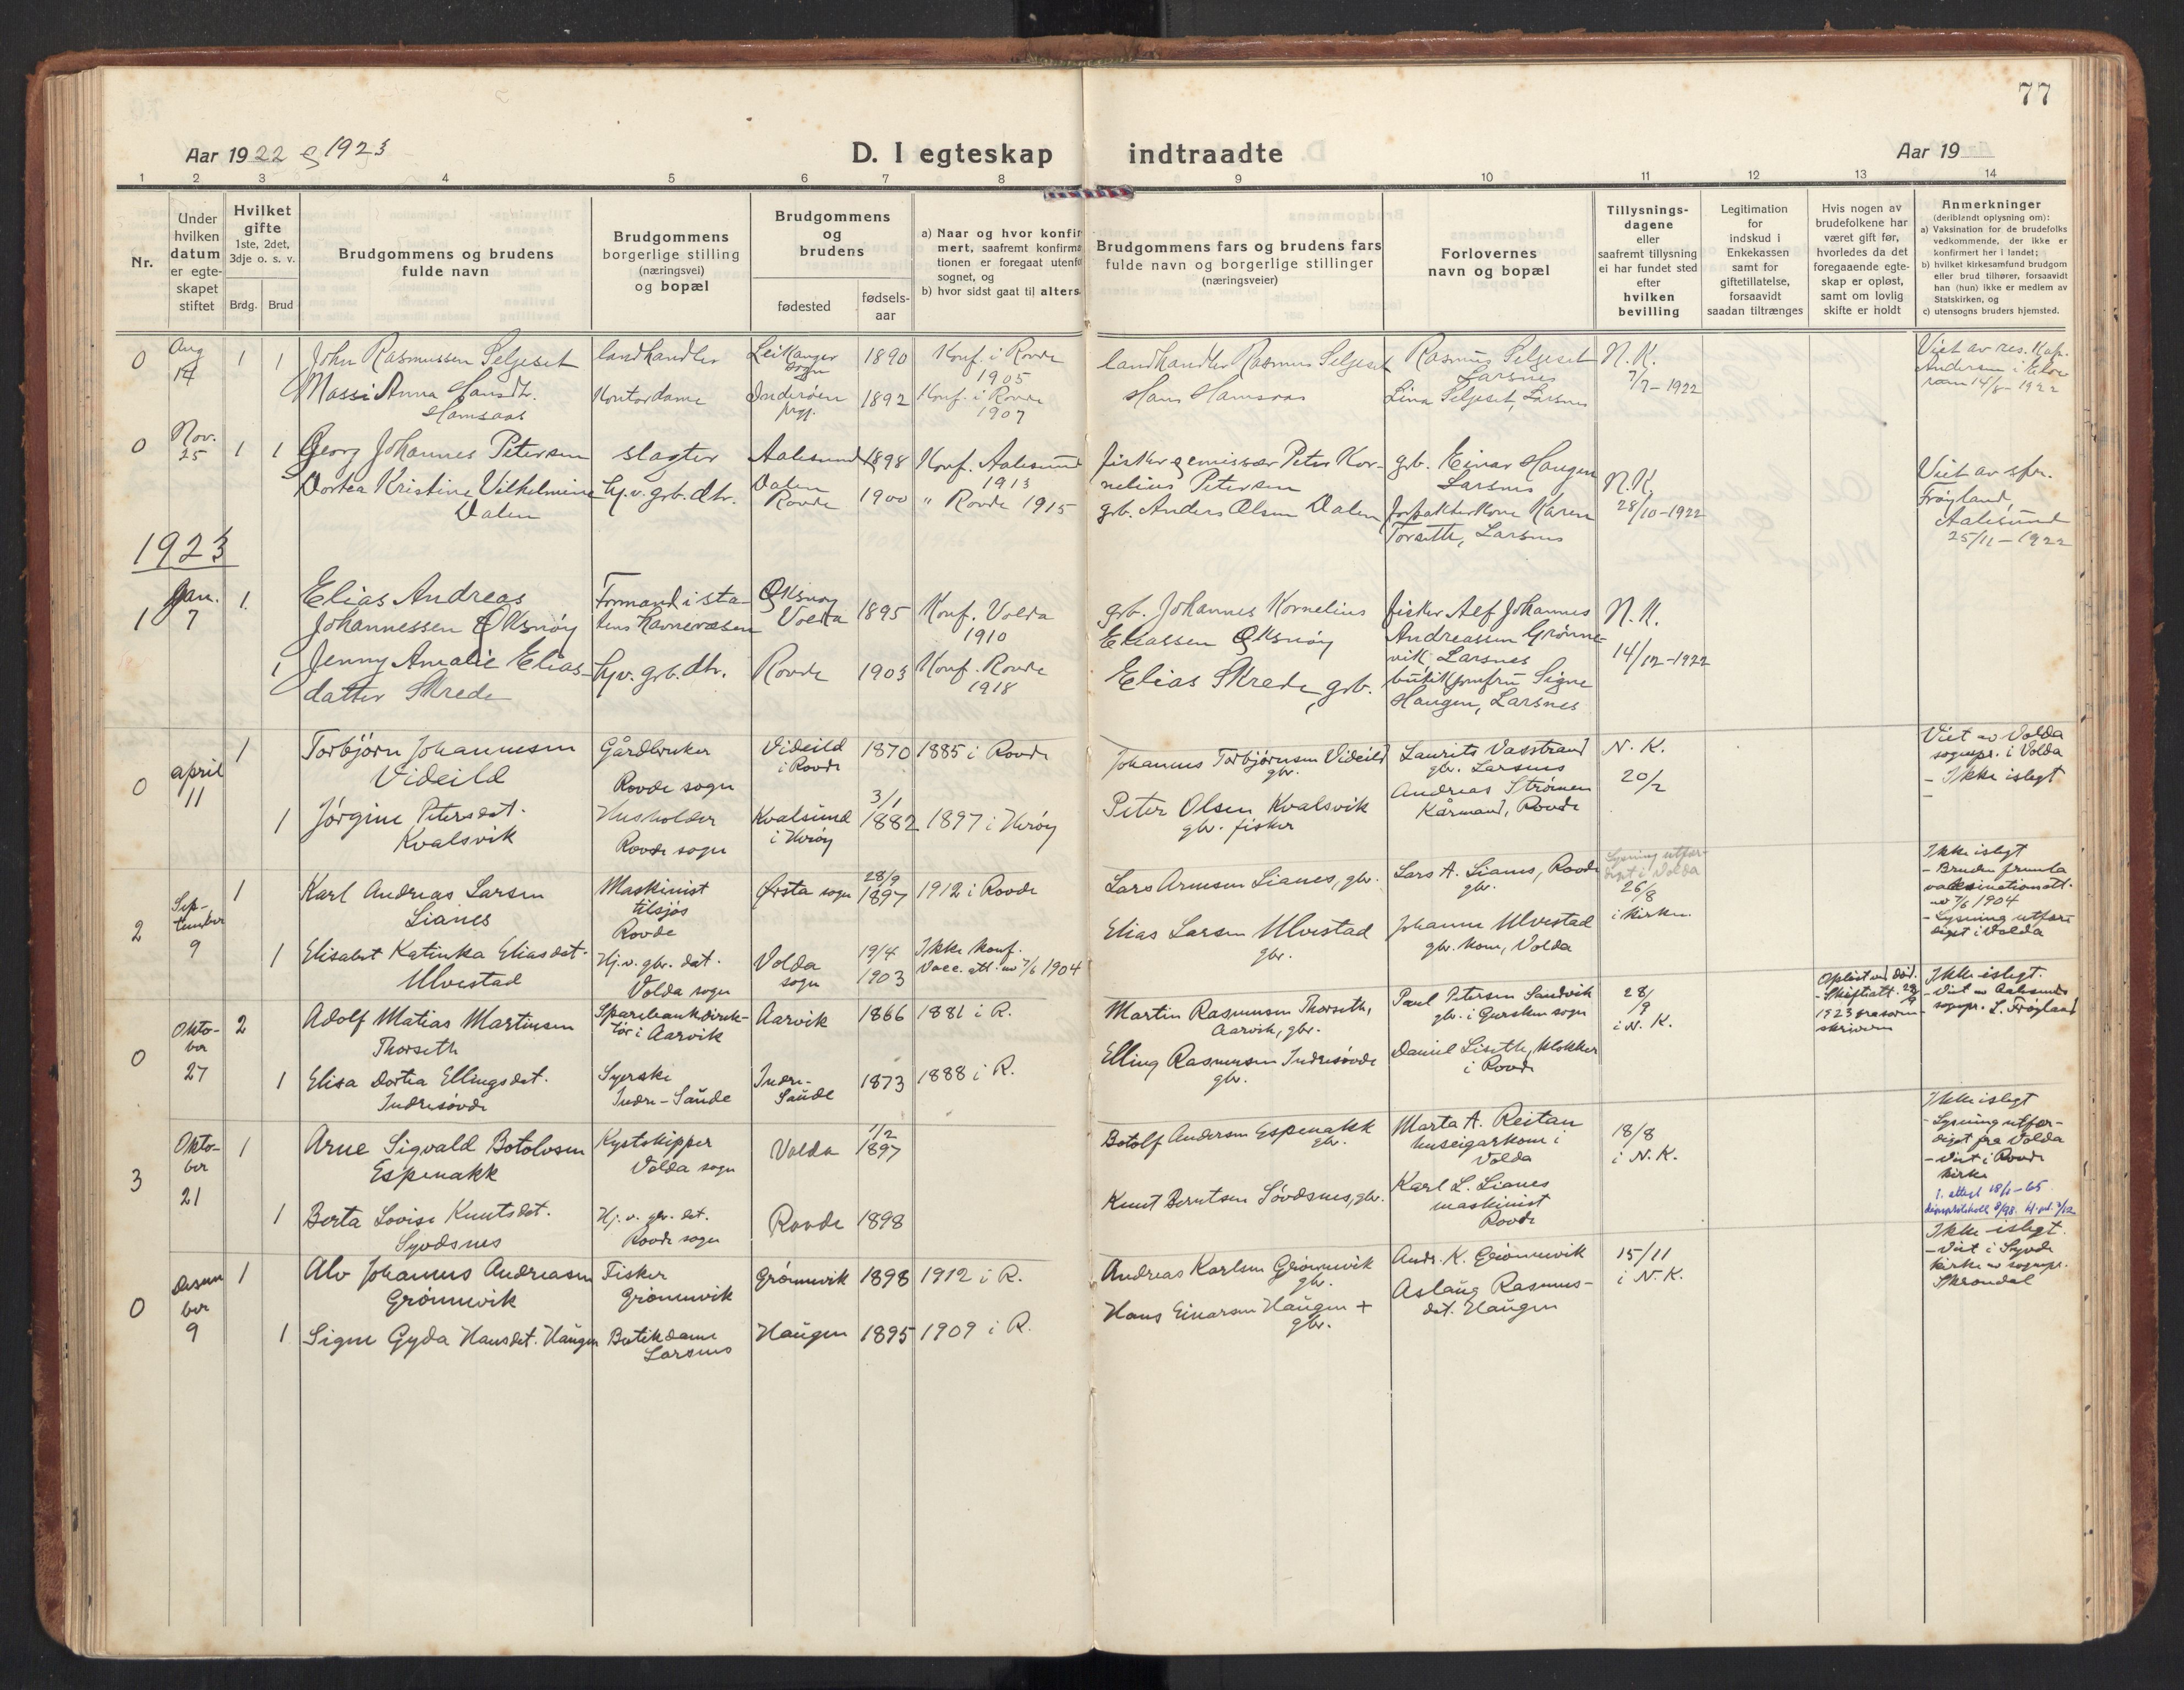 77
Aar 1922 og 1923
D. I egteskap indtraadte
Aar 19
1 2 3 4 5 6 7 8 9 10 11 12 13 14
Nr.
Under
hvilken
datum
er egte-
skapet
stiftet
Hvilket
gifte
1ste, 2det,
3dje o. s. v.
Brdg. Brud
Brudgommens og brudens
fulde navn
Brudgommens
borgerlige stilling
(næringsvei)
og bopæl
Brudgommens
og
brudens
fødested
fødsels-
aar
a) Naar og hvor konfir
mert, saafremt konfirma
tionen er foregaat utenfo
sognet, og
b) hvor sidst gaat til alters
Brudgommens fars og brudens fars
fulde navn og borgerlige stillinger
(næringsveier)
Forlovernes
navn og bopæl
Tillysnings-
dagene
eller
saafremt tillysning
ei har fundet sted
efter
hvilken
bevilling
Legitimation
for
indskud i
Enkekassen
samt for
giftetillatelse,
forsaavidt
saadan tiltrænges
Hvis nogen av
brudefolkene har
været gift før,
hvorledes da det
foregaaende egte-
skap er opløst,
samt om lovlig
skifte er holdt
Anmerkninger
(deriblandt oplysning om):
a) Vaksination for de brudefolks
vedkommende, der ikke er
konfirmert her i landet;
b) hvilket kirkesamfund brudgom
eller brud tilhører, forsaavidt
han (hun) ikke er medlem av
Statskirken, og
c) utensogns bruders hjemsted.
0
Aug
14
1 1
John Rasmussen Seljeset
Massi Anna Hansdtr.
Hamsaas
landhandler
Kontordame
Leikanger
sogn
Inderøen
prgj.
1890
1892
Konf. i Rovde
1905
Konf. i Rovde
1907
landhandler Rasmus Seljeset
Hans Hamsaas
Rasmus Seljeset
Larsnes
Lina Seljeset, Larsnes
N. K.
7/7 - 1922
Viet av res. Kap.
Andersen i
14/8 - 1922
0
Nov.
25
1 1
Georg Johannes Petersen
Dortea Kristine Vilhelmine
Dalen
slagter
hj. v. grb. dtr.
Aalesund
Dalen
Rovde
1898
1900
Konf. Aalesund
1913
" Rovde 1915
fisker og emissær Peter Kor-
nelius Petersen
grb. Anders Olsen Dalen
grb. Einar Haugen
Larsnes
forpakterkone Karen
Torseth, Larsnes
N. K.
28/10 - 1922
Viet av spr.
Frøyland,
Aalesund
25/11 - 1922
1923
1
Jan.
7
1.
1
Elias Andreas
Johannessen Øksnøy
Jenny Amalie Elias-
datter Skrede
Formand i sta-
tens havnevæsen
hjv. grb. dtr.
Øksnøy
Volda
Rovde
1895
1903
Konf. Volda
1910
Konf. Rovde
1918
grb. Johannes Kornelius
Eliassen Øksnøy
Elias Skrede, grb.
fisker Alf Johannes
Andreassen Grønne-
vik Larsnes
butikjomfru Signe
Haugen, Larsnes
N. K.
14/12 - 1922
0
april
11
1
1
Torbjørn Johannesen
Videild
Jørgine Petersdat.
Kvalsvik
Gårdbruker
Rovde sogn
Husholder
Rovde sogn
Videild
i Rovde
Kvalsund
i Herøy
1870
3/1
1882
1885 i Rovde
1897 i Herøy
Johannes Torbjørnsen Videild
gbr.
Peter Olsen Kvalsvik
gbr. fisker
Laurits Vasstrand
gbr. Larsnes
Andreas Strømen
Kårmand, Rovde
N. K.
20/2
Viet av Volda
sognepr. i Volda
- Ikke i slegt
2
Sep-
tember
9
1
1
Karl Andreas Larsen
Lianes
Elisabet Katinka Eliasdat.
Ulvestad
Maskinist
tilsjøs
Rovde
Hj. v. gbr. dat.
Volda sogn
Ørsta sogn
Volda
sogn
28/9
1897
19/4
1903
1912 i Rovde
Ikke konf.
Vacc. att. av 7/6 1904
Lars Arnesen Lianes, gbr.
Elias Larsen Ulvestad
gbr.
Lars A. Lianes, Rovde
gbr.
Johanne Ulvestad
gbr. kone, Volda
Lysning utfær-
diget i Volda
26/8
i kirken.
Ikke i slegt
- Bruden fremla
vaksinationatt.
av 7/6 1904
- Lysning utfær-
diget i Volda
0
Okto-
ber
27
2
1
Adolf Matias Martinsen
Thorseth
Elisa Dortea Ellingsdat.
Indresøvde
Sparebankdirek-
tør i Aarvik
Syerske
Indre-Saude
Aarvik
Indre-
Saude
1866
1873
1881 i R.
1888 i R.
Martin Rasmussen Thorseth,
Aarvik, gbr.
Elling Rasmussen Indresøvde
gbr.
Paul Petersen Sandvik
gbr. i Gursken sogn
Daniel Liseth, klokker
i Rovde
28/
9
i N. K.
Opløst ved død.
- Skifteatt. 28/9
1923 fra soren-
skriveren
Ikke i slegt.
- Viet av Aalesunds
sognepr. L. Frøyland
3
Okto-
ber
21
1
1
Arne Sigvald Botolvsen
Espenakk
Berta Lovise Knutsdat.
Syvdsnes
Kystskipper
Volda sogn
Hj. v. gbr. dat.
Rovde sogn
Volda
Rovde
7/2
1897
1898
Botolf Andersen Espenakk
gbr.
Knut Berntsen Søvdsnes, gbr.
Marta A. Reitan
huseigarkone i
Volda
Karl L. Lianes
maskinist
Rovde
18/8
i N. K.
Ikke i slegt
- Lysning utfær-
diget fra Volda
- Viet i Rovde
kirke
1. attest 18/1-65
0
Desem
ber
9
1
1
Alv Johannes Andreasen
Grønnevik
Signe Gyda Hansdat. Haugen
Fisker
Grønnevik
Butikdame
Larsnes
Grønnevik
Haugen
1898
1895
1912 i R.
1909 i R.
Andreas Karlsen Grønnevik
gbr.
Hans Einarsen Haugen +
gbr.
Andr. K. Grønnevik
Aslaug Rasmus-
dat. Haugen
15/11
i N. K.
Ikke i slegt.
- Viet i Syvde
kirke av sognepr.
Skrondal